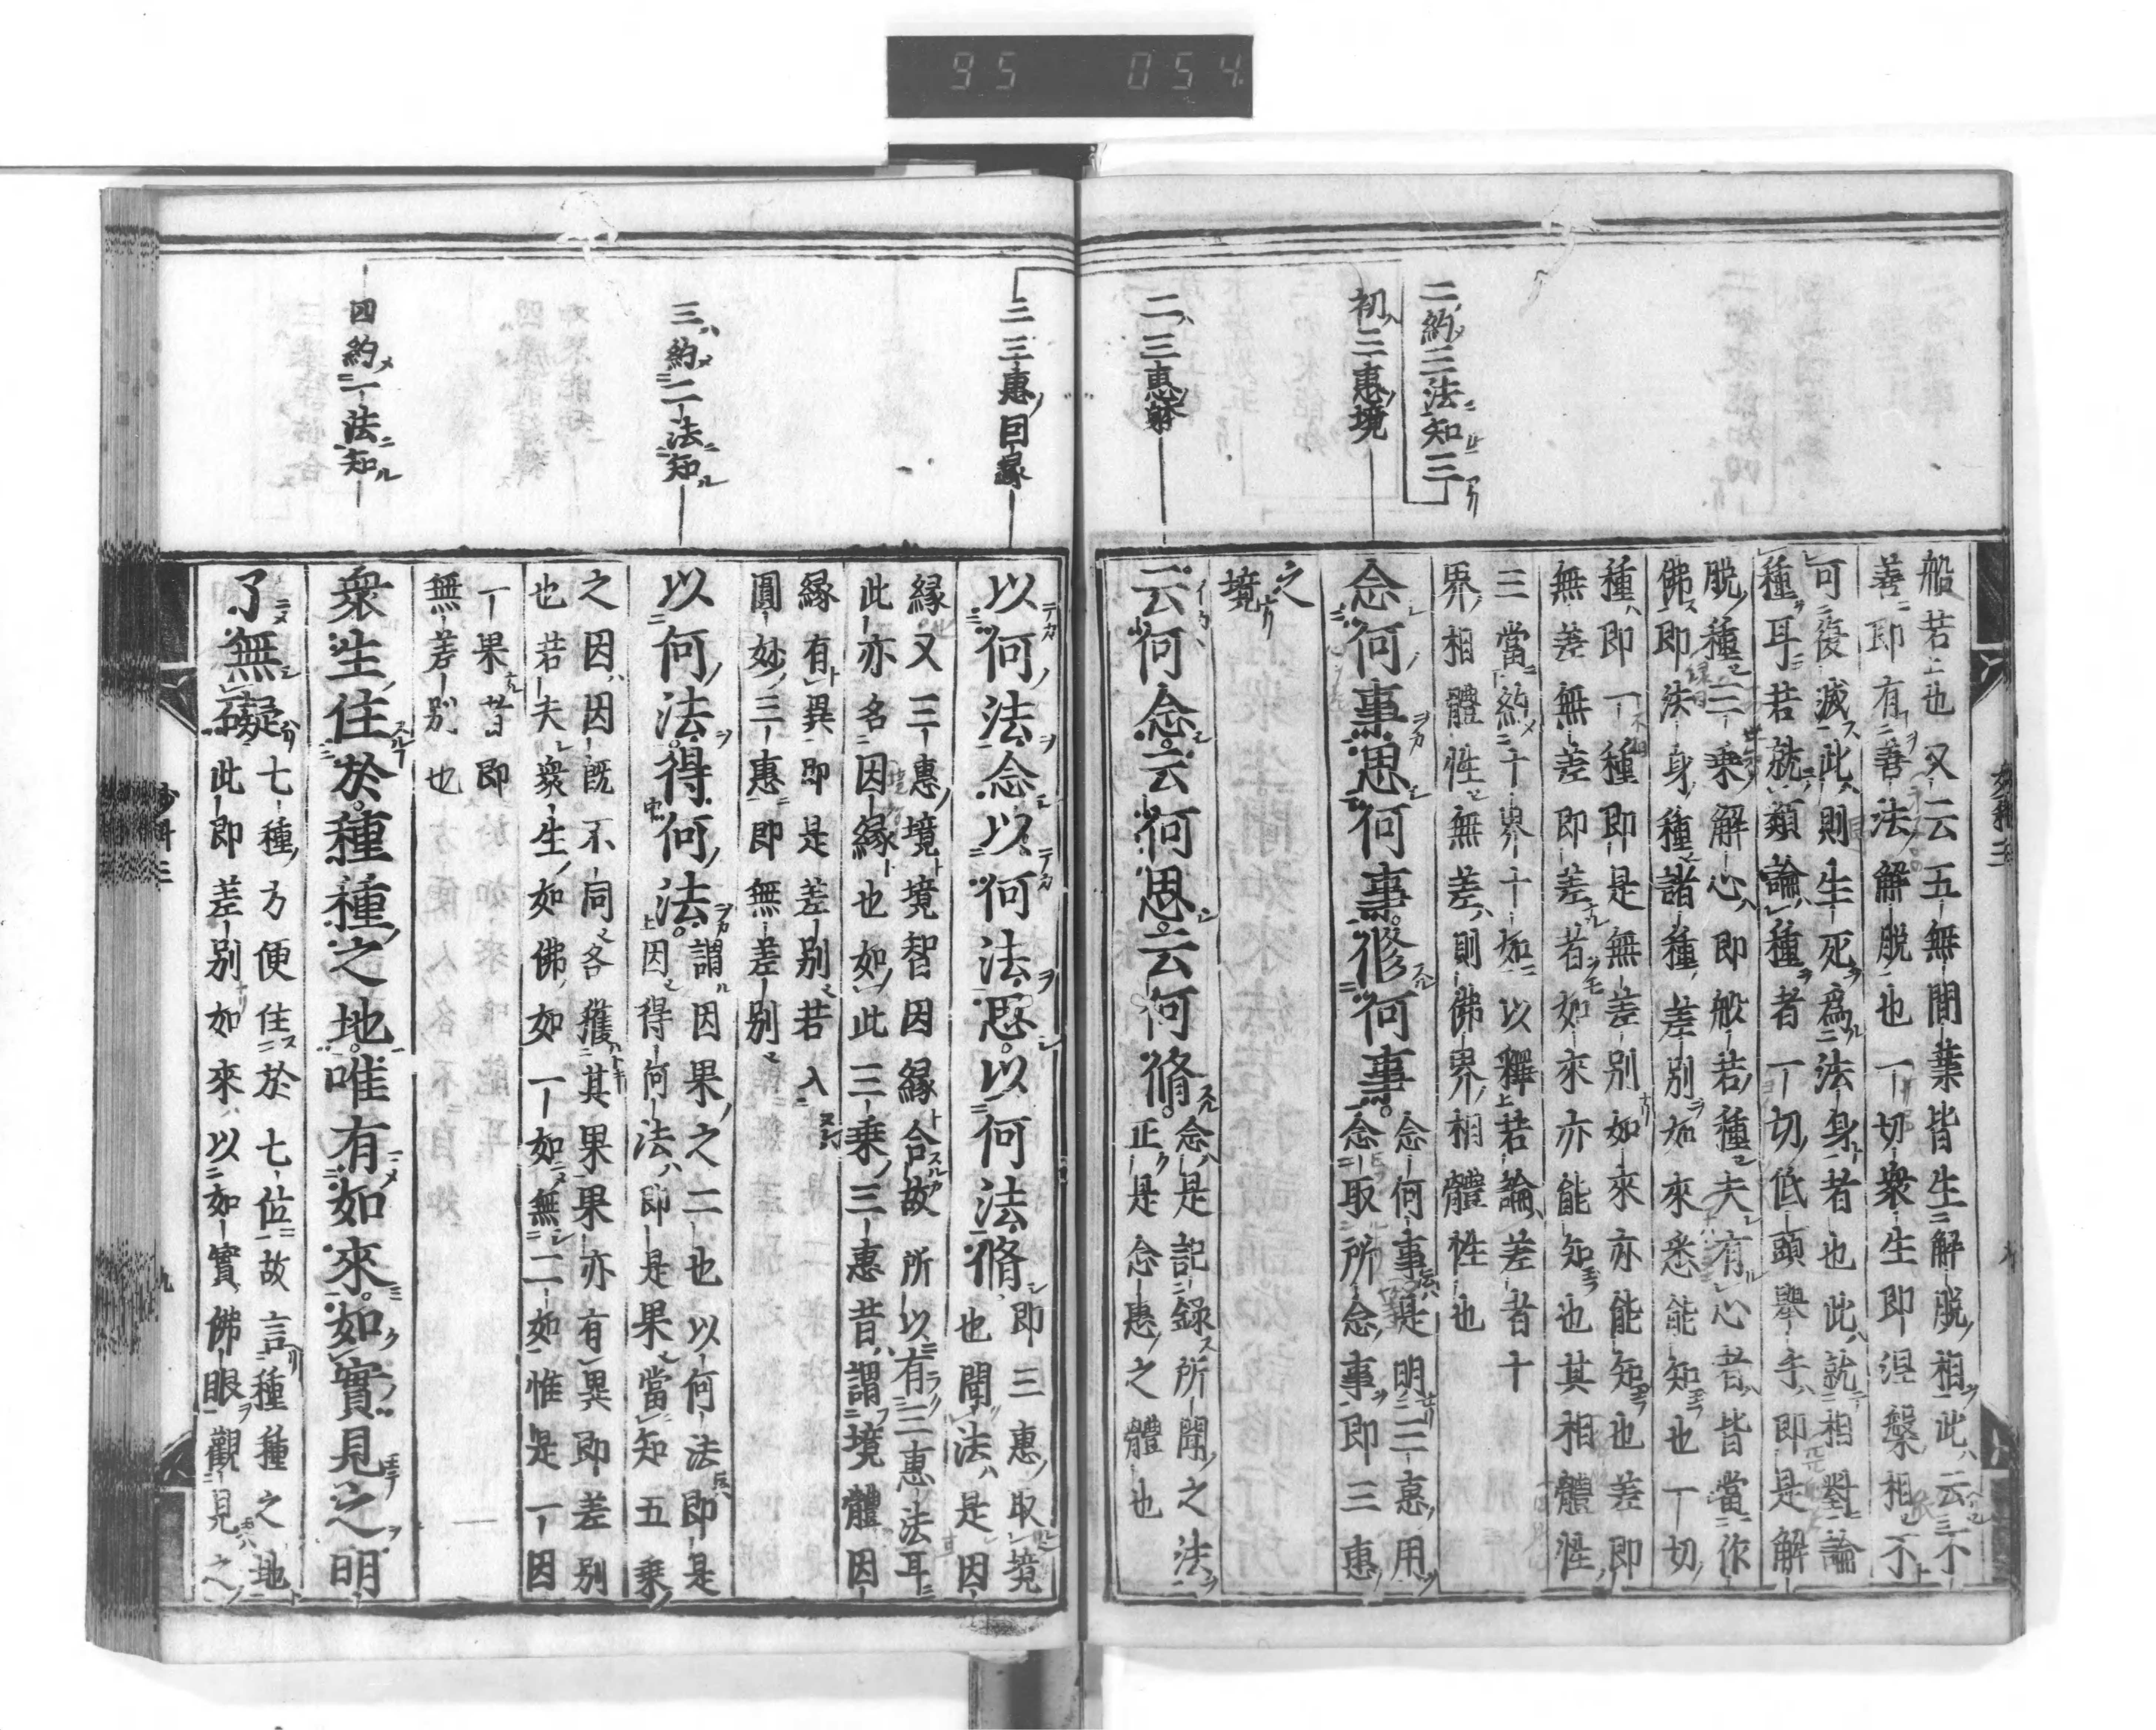 95 054
二約三法知三
初三惠境
二三惠躰
三三惠因緣
三約二法知
四約一法知
般若也又云五無間業皆生解脱相此云不
善即有善法解脱也一切衆生即涅槃相不
可復滅此則生死為法身者也此就相對論
種耳若就類論種者一切低頭舉手即是解
脱種三乘解心即般若種夫有心者皆當作
佛即法身種諸種差別如來悉能知也一切
種即一種即是無差別如來亦能知也差即
無差無差即差者如來亦能知也其相體性
三當約十界十如以釋若論差者十
界相體性無差則佛界相體性也
念何事思何事修何事
念何事是明三惠用
念取所念事即三惠
之
境
云何念云何思云何脩
念是記録所聞之法
正是念惠之體也
以何法念以何法思以何法脩
即三惠取境
也聞法是因
緣又三惠境境智因緣合故所以有三惠法耳
此亦名因緣也如此三乘三惠昔謂境體因
緣有異即是差別若入
圓妙三惠即無差別
以何法得何法
謂因果之二也以何法即是
因得何法即是果當知五乘
之因因既不同各獲其果果亦有異即差別
也若夫衆生如佛如一如無二如惟是一因
一果昔即
無差別也
衆生住於種種之地唯有如來如實見之明
了無礙
七種方便住於七位故言種種之地
此即差別如來以如實佛眼觀見之